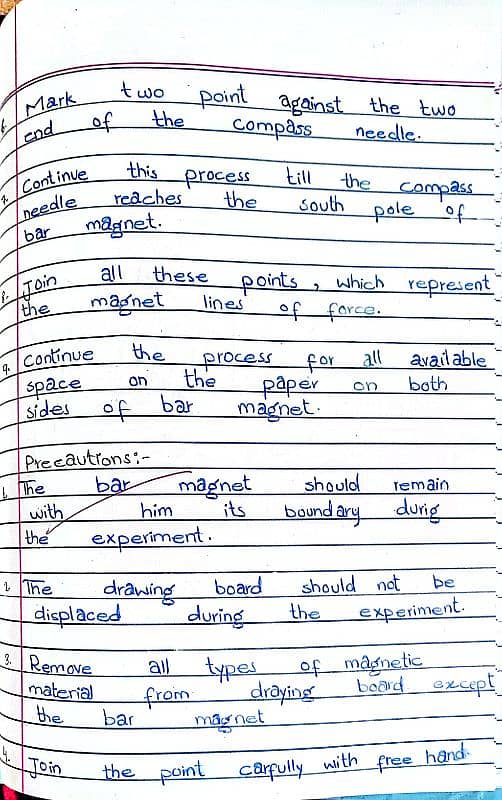 6. Mark two point against the two
end of the compass needle.
7. Continue this process till the compass
needle reaches the south pole of
bar magnet.
8. Join all these points, which represent
the magnet lines of force.
9. Continue the process for all available
space on the paper on both
sides of bar magnet.
Precautions:-
1. The bar magnet should remain
with him its boundary durig
the experiment.
2. The drawing board should not be
displaced during the experiment.
3. Remove all types of magnetic
material from draying board except
the bar magnet
4. Join the point carfully with free hand.